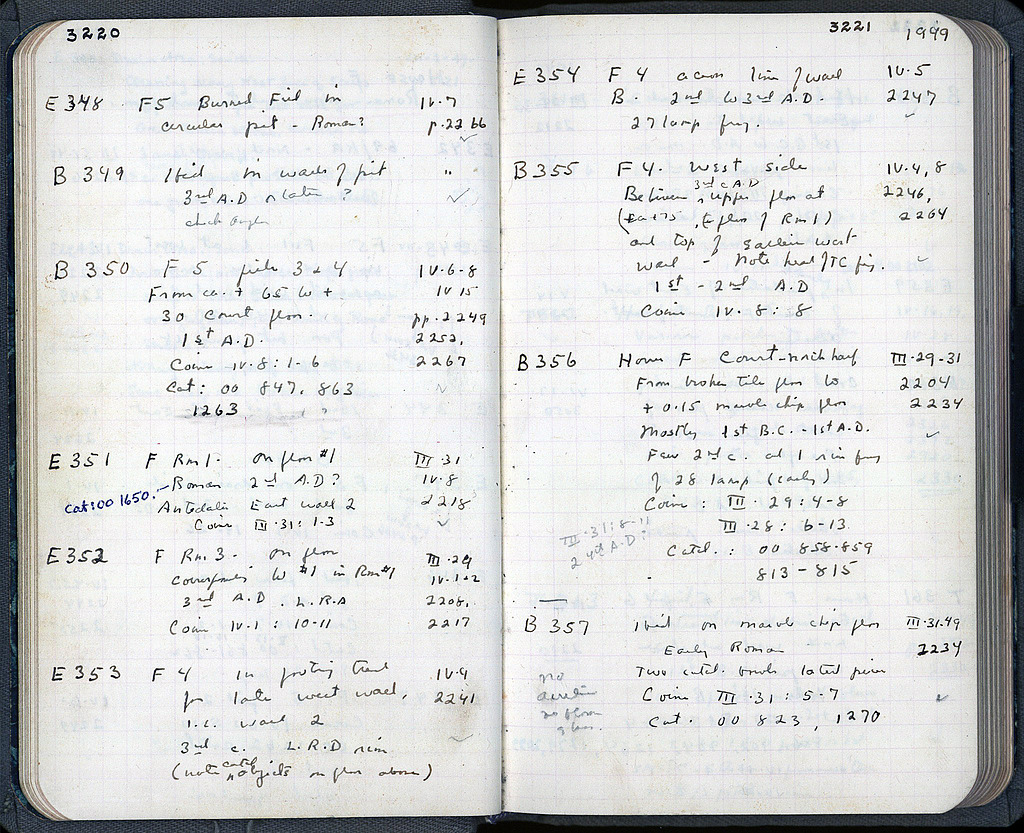 3220
E 348 F5 Burned Fill in IV-7
circular pit - Roman? p. 2266
B 349 Ibid in walls of pit " "
3rd A.D or later ?
check
B 350 F 5 fill 3 & 4 IV-6-8
From ca + 65 to + IV 15
30 Court floor. pp. 2249
1st A.D. 2252,
Coin IV-8: 1-6 2267
Cat: 00 847, 863
1263
E 351 F Rm 1. on floor #1 III-31
Roman 2nd A.D? IV-8
Cat: 00 1650. Antedates East wall 2 2218
Coin III-31: 1-3
E 352 F Rm. 3. on floor III-29
corresponds to #1 in Rm #1 IV-1+2
3rd A.D. L.R.A 2208,
Coin IV-1: 10-11 2217
E 353 F 4 in footing trench IV-9
for late west wall, 2241
i.e. wall 2
3rd c. L.R.D rim.
(note catd objects on floor above)
3221 1999
E 354 F 4 across line of wall IV-5
B. 2nd to 3rd A.D. 2247
27 lamp frg.
B 355 F 4. West side IV-4, 8
3rd c A.D
Between upper floor at 2246,
( floor of Rm 1) 2264
and top of earlier west
wall - Note head of TC fig.
1st - 2nd A.D
Coin IV-8: 8
B 356 House F Court-north half III-29-31
From broken tile floor to 2204
+ 0.15 marble chip floor 2234
Mostly 1st B.C. - 1st A.D.
Few 2nd c. at 1 rim frg
of 28 lamp (early)
Coin: III-29: 4-8
III-31: 8-11
III-28: 6-13
2 4th A.D.
Catd.: 00 858-859
813-815
B 357 Ibid on marble chip floor III-31-49
Early Roman 2234
Two catd. bowls later pieces
no
Coin III-31: 5-7
Cat. 00 823, 1270